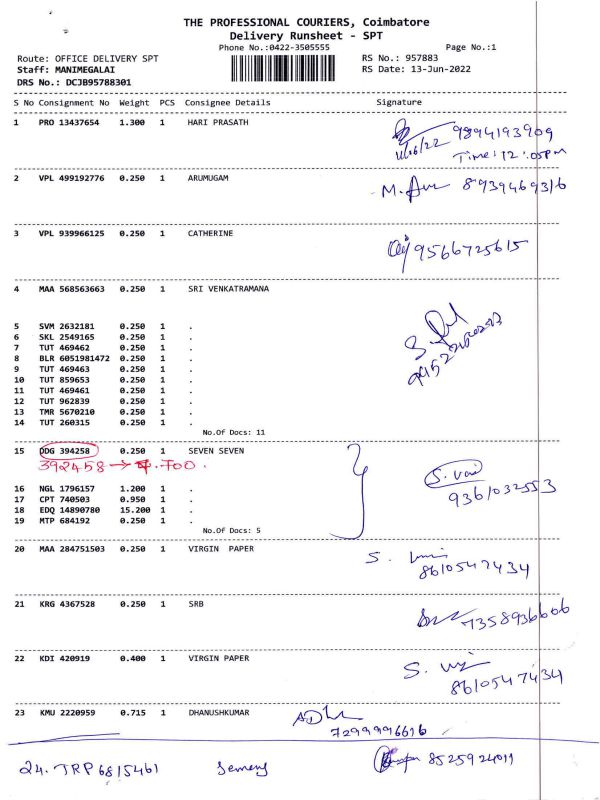 THE PROFESSIONAL COURIERS, Coimbatore
Delivery Runsheet - SPT
Phone No.:0422-3505555 Page No.:1
Route: OFFICE DELIVERY SPT RS No.: 957883
Staff: MANIMEGALAI RS Date: 13-Jun-2022
DRS No.: DCJB95788301
S No Consignment No Weight PCS Consignee Details Signature
1 PRO 13437654 1.300 1 HARI PRASATH 9894193909
Time: 12:05pm
2 VPL 499192776 0.250 1 ARUMUGAM 8939469316
3 VPL 939966125 0.250 1 CATHERINE 9566725615
4 MAA 568563663 0.250 1 SRI VENKATRAMANA
5 SVM 2632181 0.250 1 .
6 SKL 2549165 0.250 1 .
7 TUT 469462 0.250 1 .
8 BLR 6051981472 0.250 1 .
9 TUT 469463 0.250 1 .
10 TUT 859653 0.250 1 .
11 TUT 469461 0.250 1 .
12 TUT 962839 0.250 1 .
13 TMR 5670210 0.250 1 .
14 TUT 260315 0.250 1 .
No.Of Docs: 11
15 DDG 394258 0.250 1 SEVEN SEVEN
392458 → .700.
16 NGL 1796157 1.200 1 .
17 CPT 740503 0.950 1 . 9361032553
18 EDQ 14890780 15.200 1 .
19 MTP 684192 0.250 1 .
No.Of Docs: 5
20 MAA 284751503 0.250 1 VIRGIN PAPER
8610547434
21 KRG 4367528 0.250 1 SRB 7358936606
22 KDI 420919 0.400 1 VIRGIN PAPER
8610547434
23 KMU 2220959 0.715 1 DHANUSHKUMAR
7299996616
24. TRP 6815461 8525924011